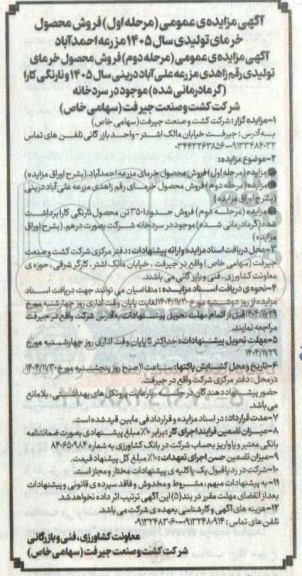 آگهی مزایده‌ی عمومی (مرحله اول) فروش محصول
خرمای تولیدی سال ۱۴۰۵ مزرعه احمدآباد
آگهی مزایده‌ی عمومی (مرحله دوم) فروش محصول خرمای
تولیدی رقم زاهدی مزرعه علی آباد درینی سال ۱۴۰۵ و نارنگی کارا
(گرما درمانی شده) موجود در سردخانه
شرکت کشت و صنعت جیرفت (سهامی خاص)
۱-مزایده گزار: شرکت کشت و صنعت جیرفت (سهامی خاص)
به آدرس: جیرفت خیابان مالک اشتر - واحد بازرگانی تلفن های تماس
۰۳۴۴۳۲۶۳۸۵۶-۰۹۱۳۳۴۸۴۰۳۲
۲-موضوع مزایده:
مزایده (مرحله اول) فروش محصول خرمای مزرعه احمدآباد. (بشرح اوراق مزایده)
مزایده (مرحله دوم) فروش محصول خرمای رقم زاهدی مزرعه علی آباد درینی
(بشرح اوراق مزایده)
مزایده (مرحله دوم) فروش حدودا ۳۵۰ تن محصول نارنگی کارا برداشت
شده (گرمادرمانی شده) موجود در سردخانه شرکت بصورت درهم. (بشرح اوراق
مزایده)
۳-محل دریافت اسناد مزایده و ارائه پیشنهادات: دفتر مرکزی شرکت کشت و صنعت
جیرفت (سهامی خاص) واقع در جیرفت، خیابان مالک اشتر، کارگر شرقی، حوزه ی
معاونت کشاورزی، فنی و بازرگانی می باشد.
۴-نحوه ی دریافت اسناد مزایده: متقاضیان می توانند جهت دریافت اسناد
مزایده از روز دوشنبه مورخ ۱۴۰۴/۱۱/۲۰ لغایت پایان وقت اداری روز چهارشنبه مورخ
۱۴۰۴/۱۱/۲۹ قبل از اتمام مهلت تحویل پیشنهادات به آدرس شرکت واقع در جیرفت
مراجعه نمایند.
۵-مهلت تحویل پیشنهادات: حداکثر تا پایان وقت اداری روز چهارشنبه مورخ
۱۴۰۴/۱۱/۲۹
۶-تاریخ و محل گشایش پاکتها: ساعت ۹ صبح روز پنجشنبه مورخ ۱۴۰۴/۱۱/۳۰
در محل: دفتر مرکزی شرکت واقع در جیرفت.
حضور پیشنهاد دهندگان در جلسه با رعایت پروتکل های بهداشتی، بلامانع
می باشد.
۷-مدت قرارداد: در اسناد مزایده و قرارداد فی مابین قید شده است.
۸-میزان تضمین فرایند اجرای کار: برابر ۱۰٪ مبلغ پیشنهادی بصورت ضمانتنامه
بانکی معتبر و یا واریز بحساب شرکت در بانک کشاورزی به شماره ۸۴۰۶۵۰۹۸۴
۹-میزان تضمین حسن اجرای تعهدات: ۱۰٪ مبلغ کل پیشنهاد قیمت.
۱۰-شرکت در رد یا قبول یک یا کلیه ی پیشنهادات مختار و مجاز است.
۱۱-به پیشنهادات مبهم، مشروط و مخدوش و فاقد سپرده ی قانونی و پیشنهادات
بعد از انقضای مهلت مقرر در بند (۵) این آگهی ترتیب اثر داده نخواهد شد.
۱۲-هزینه های آگهی و کارشناسی بعهده ی شرکت می باشد.
تلفن های تماس:
معاونت کشاورزی، فنی و بازرگانی
شرکت کشت و صنعت جیرفت (سهامی خاص)